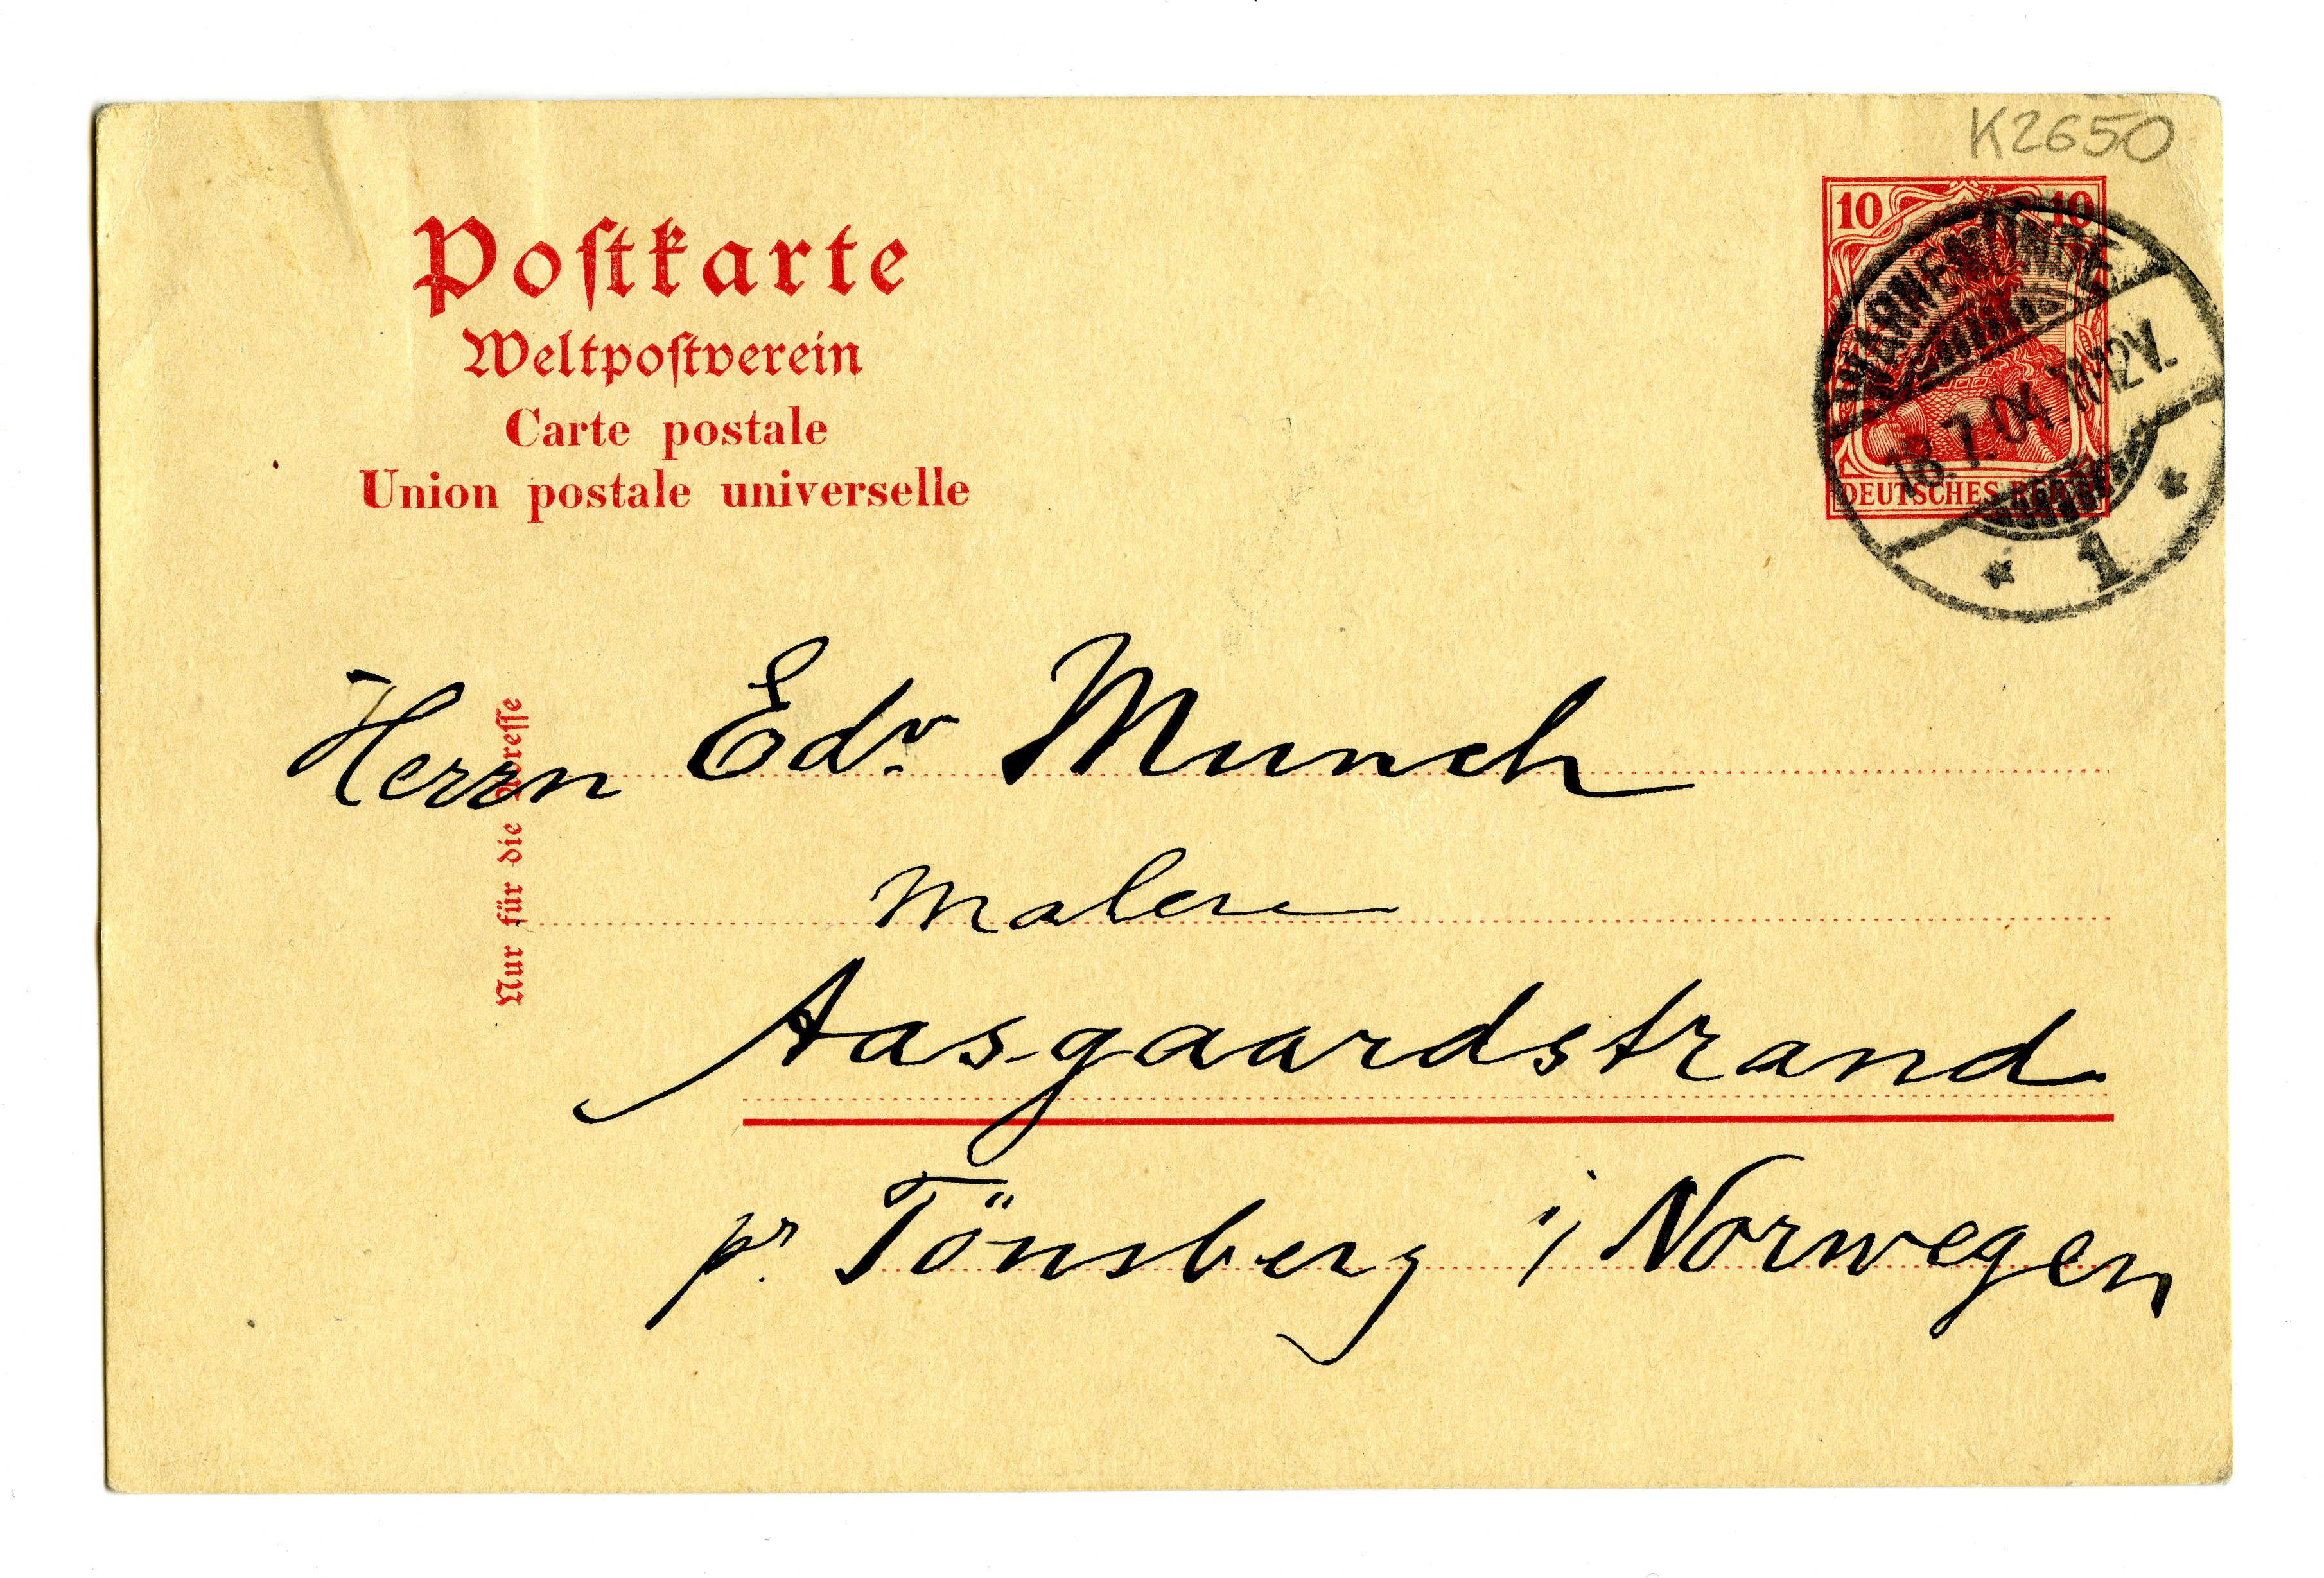 K2650
Postkarte
Weltpostverein
Carte postale
Union postale universelle
10 10
DEUTSCHES REICH
WARNEMÜNDE
18.7.04.11-12V.
* 1 *
Nur für die Adresse
Herrn Edv. Munch
Maler
Aasgaardstrand
pr. Tönsberg i/ Norwegen